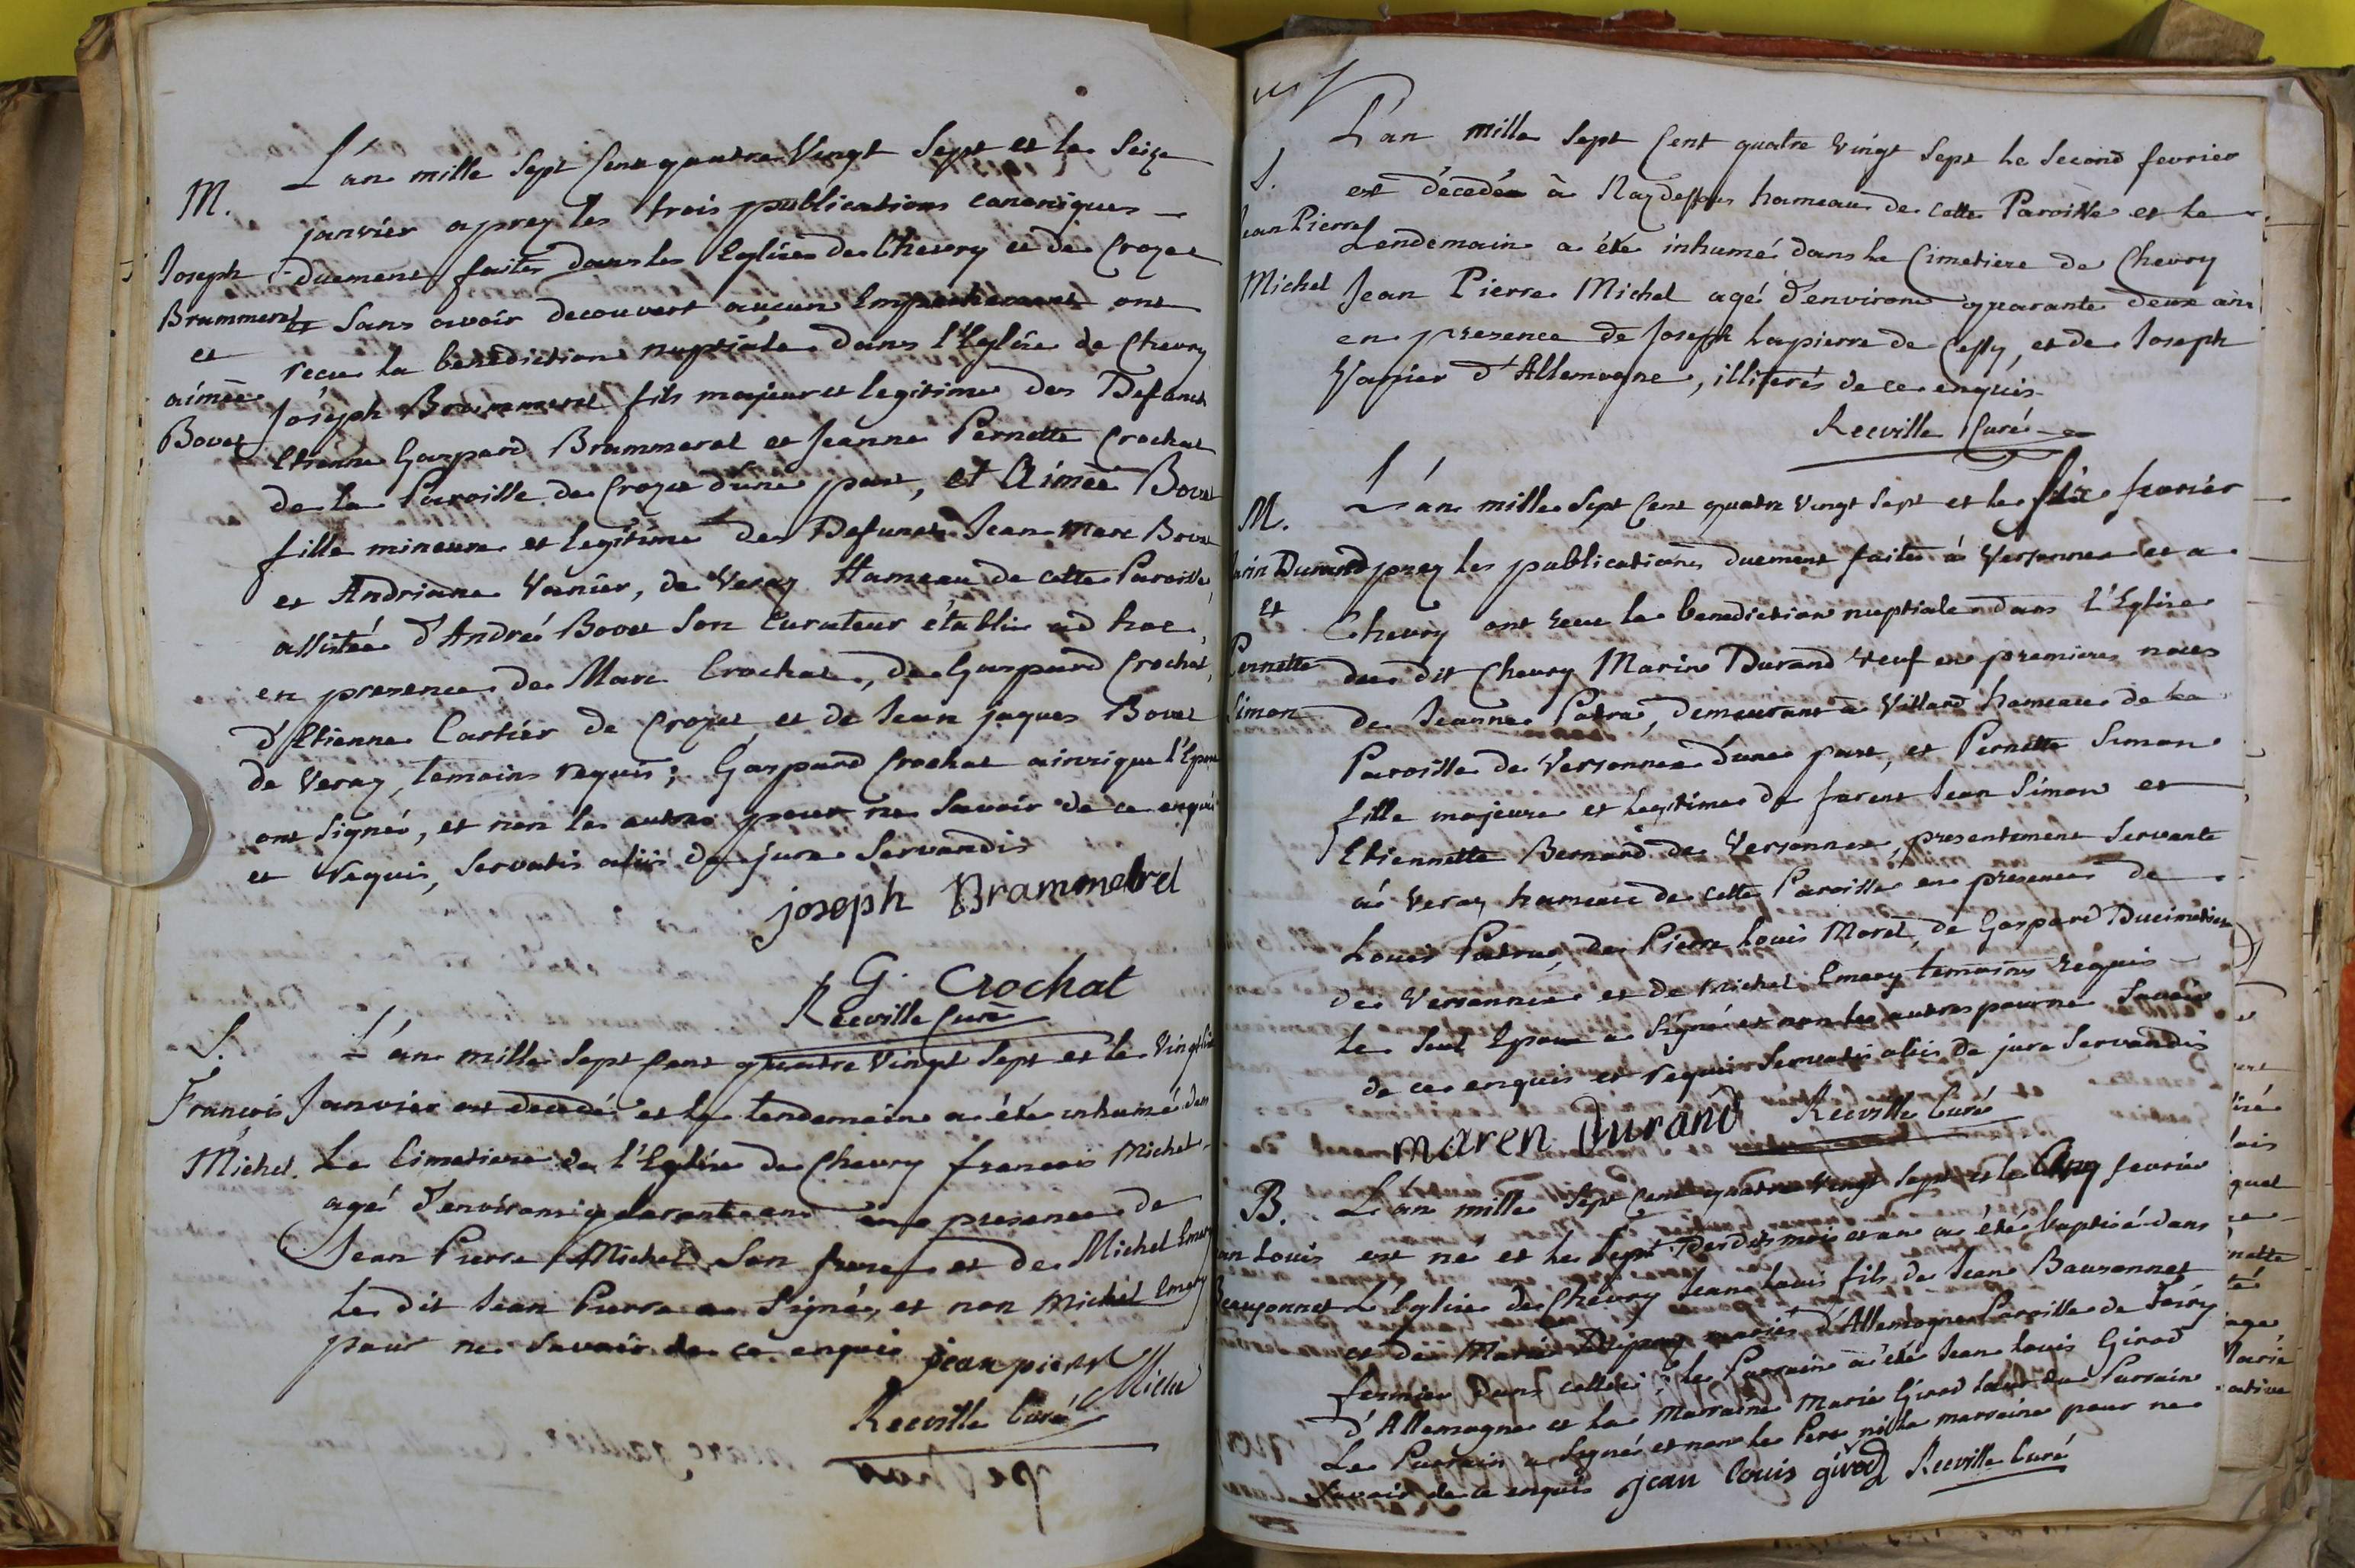 M.
Joseph
Brummerel
et
aimée
Bovet
L'an mille Sept Cent quatre Vingt Sept et le Seize
janvier aprez les trois publications canoniques
duement faites dans les Eglises de Chevry et de Crozet
et Sans avoir decouvert aucun Empechement ont
recu la benediction nuptiale dans l'Eglise de Chevry
Joseph Brammerel fils majeur et legitime des Defunts
Etienne Gaspard Brammerel et Jeanne Pernette Crochat
de la Paroisse de Crozet d'une part, et Aimée Bovet
fille mineure et legitime des Defunts Jean Marc Bovet
et Andriane Vanier, de Veraz Hameau de cette Paroisse,
assistée d'André Bovet Son Curateur établi ad hoc,
en presence de Marc Crochat, de Gaspard Crochat,
d'Etienne Cartier de Crozet et de Jean jaques Bovet
de Veraz, temoins requis; Gaspard Crochat ainsi que l'Epoux
ont Signé, et non les autres pour ne Savoir de ce enquis
et requis, Servatis aliis de jure Servandis
joseph Brammerel
G. Crochat
Reeville Curé
S.
François
Michel.
L'an mille Sept Cent quatre Vingt Sept et le Vingt
Janvier est decedé et le lendemain a été inhumé dans
Le Cimetiere de l'Eglise de Chevry francois Michel
agé d'environ quarante ans en presence de
Jean Pierre Michel Son frere et de Michel Emery
Le dit Jean Pierre a Signé, et non Michel Emery
pour ne Savoir de ce enquis
jean pierre Michel
Reeville Curé
S.
Jean Pierre
Michel
L'an mille Sept Cent quatre Vingt Sept le Second fevrier
est décedée à Naz dessous hameau de cette Paroisse et le
Lendemain a été inhumé dans le Cimetiere de Chevry
Jean Pierre Michel agé d'environ quarante deux ans
en presence de Joseph Lapierre de Cessy, et de Joseph
Vanier d'Allemogne, illiterés de ce enquis
Reeville Curé
M.
arin Durand
et
Pernette
Simon
L'an mille Sept Cent quatre Vingt Sept et le Six fevrier
aprez les publications duement faites à Versonnex et a
Chevry ont recu la benediction nuptiale dans l'Eglise
du dit Chevry Marin Durand Veuf en premieres noces
de Jeanne Patru, demeurant à Villard hameau de la
Paroisse de Versonnex d'une part, et Pernette Simon
fille majeure et legitime de Jean Simon et
Etiennette Bernard de Versonnex, presentement Servante
à Veraz hameau de cette Paroisse en presence de
Louis Patru, de Pierre Louis Morel, de Gaspard Ducimetiere
de Versonnex et de Michel Emery temoins requis
le Seul Epoux a Signé et non les autres pour ne Savoir
de ce enquis et requis Servatis aliis de jure Servandis
maren Durand
Reeville Curé
B.
an Louis
Bausonnet
L'an mille Sept Cent quatre Vingt Sept et le Cinq fevrier
est né et le Sept des dits mois et an a été baptisé dans
L'Eglise de Chevry Jean Louis fils de Jean Bausonnet
et de Marie mariés d'Allemogne Paroisse de
fermier dans celle ci; le Parrain a été Jean Louis Girod
d'Allemogne et la Marraine Marie Girod Soeur du Parrain
Le Parrain a Signé et non le Pere ni la marraine pour ne
Savoir de ce enquis
jean louis girod
Reeville Curé